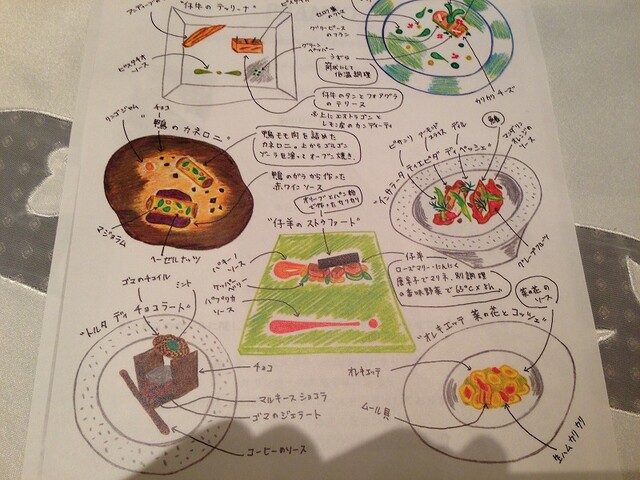 "仔牛のテリーナ"
ピスタチオ
ソース
グリーン
ペッパー
グリーンピースの
フラン
うずら
低温調理
カリカリチーズ
仔牛のタンとフォアグラ
のテリーヌ
※上にエストラゴンと
レモン皮のカンディーティ
リンゴジャム
チョコ
"鴨のカネロニ"
鴨もも肉を詰めた
カネロニ。上からゴルゴン
ゾーラを塗ってオーブン焼き。
鴨のガラから作った
赤ワインソース
マジョラム
ヘーゼルナッツ
ディル
マンダリン
オレンジの
ソース
"インサラータ ティエピダ ディ ペッシェ"
グレープフルーツ
オリーブとパン粉
で作ったカリカリ
"仔羊のストゥファート"
ソース
パプリカ
ソース
仔羊
ローズマリー・にんにく
唐辛子でマリネ、別調理
の香味野菜で65℃×8h
ゴマのチュイル
ミント
"トルタ ディ チョコラート"
チョコ
マルキーズショコラ
ゴマのジェラート
コーヒーのソース
菜の花の
ソース
"オレキエッテ 菜の花とコッツェ"
オレキエッテ
ムール貝
生ハムカリカリ